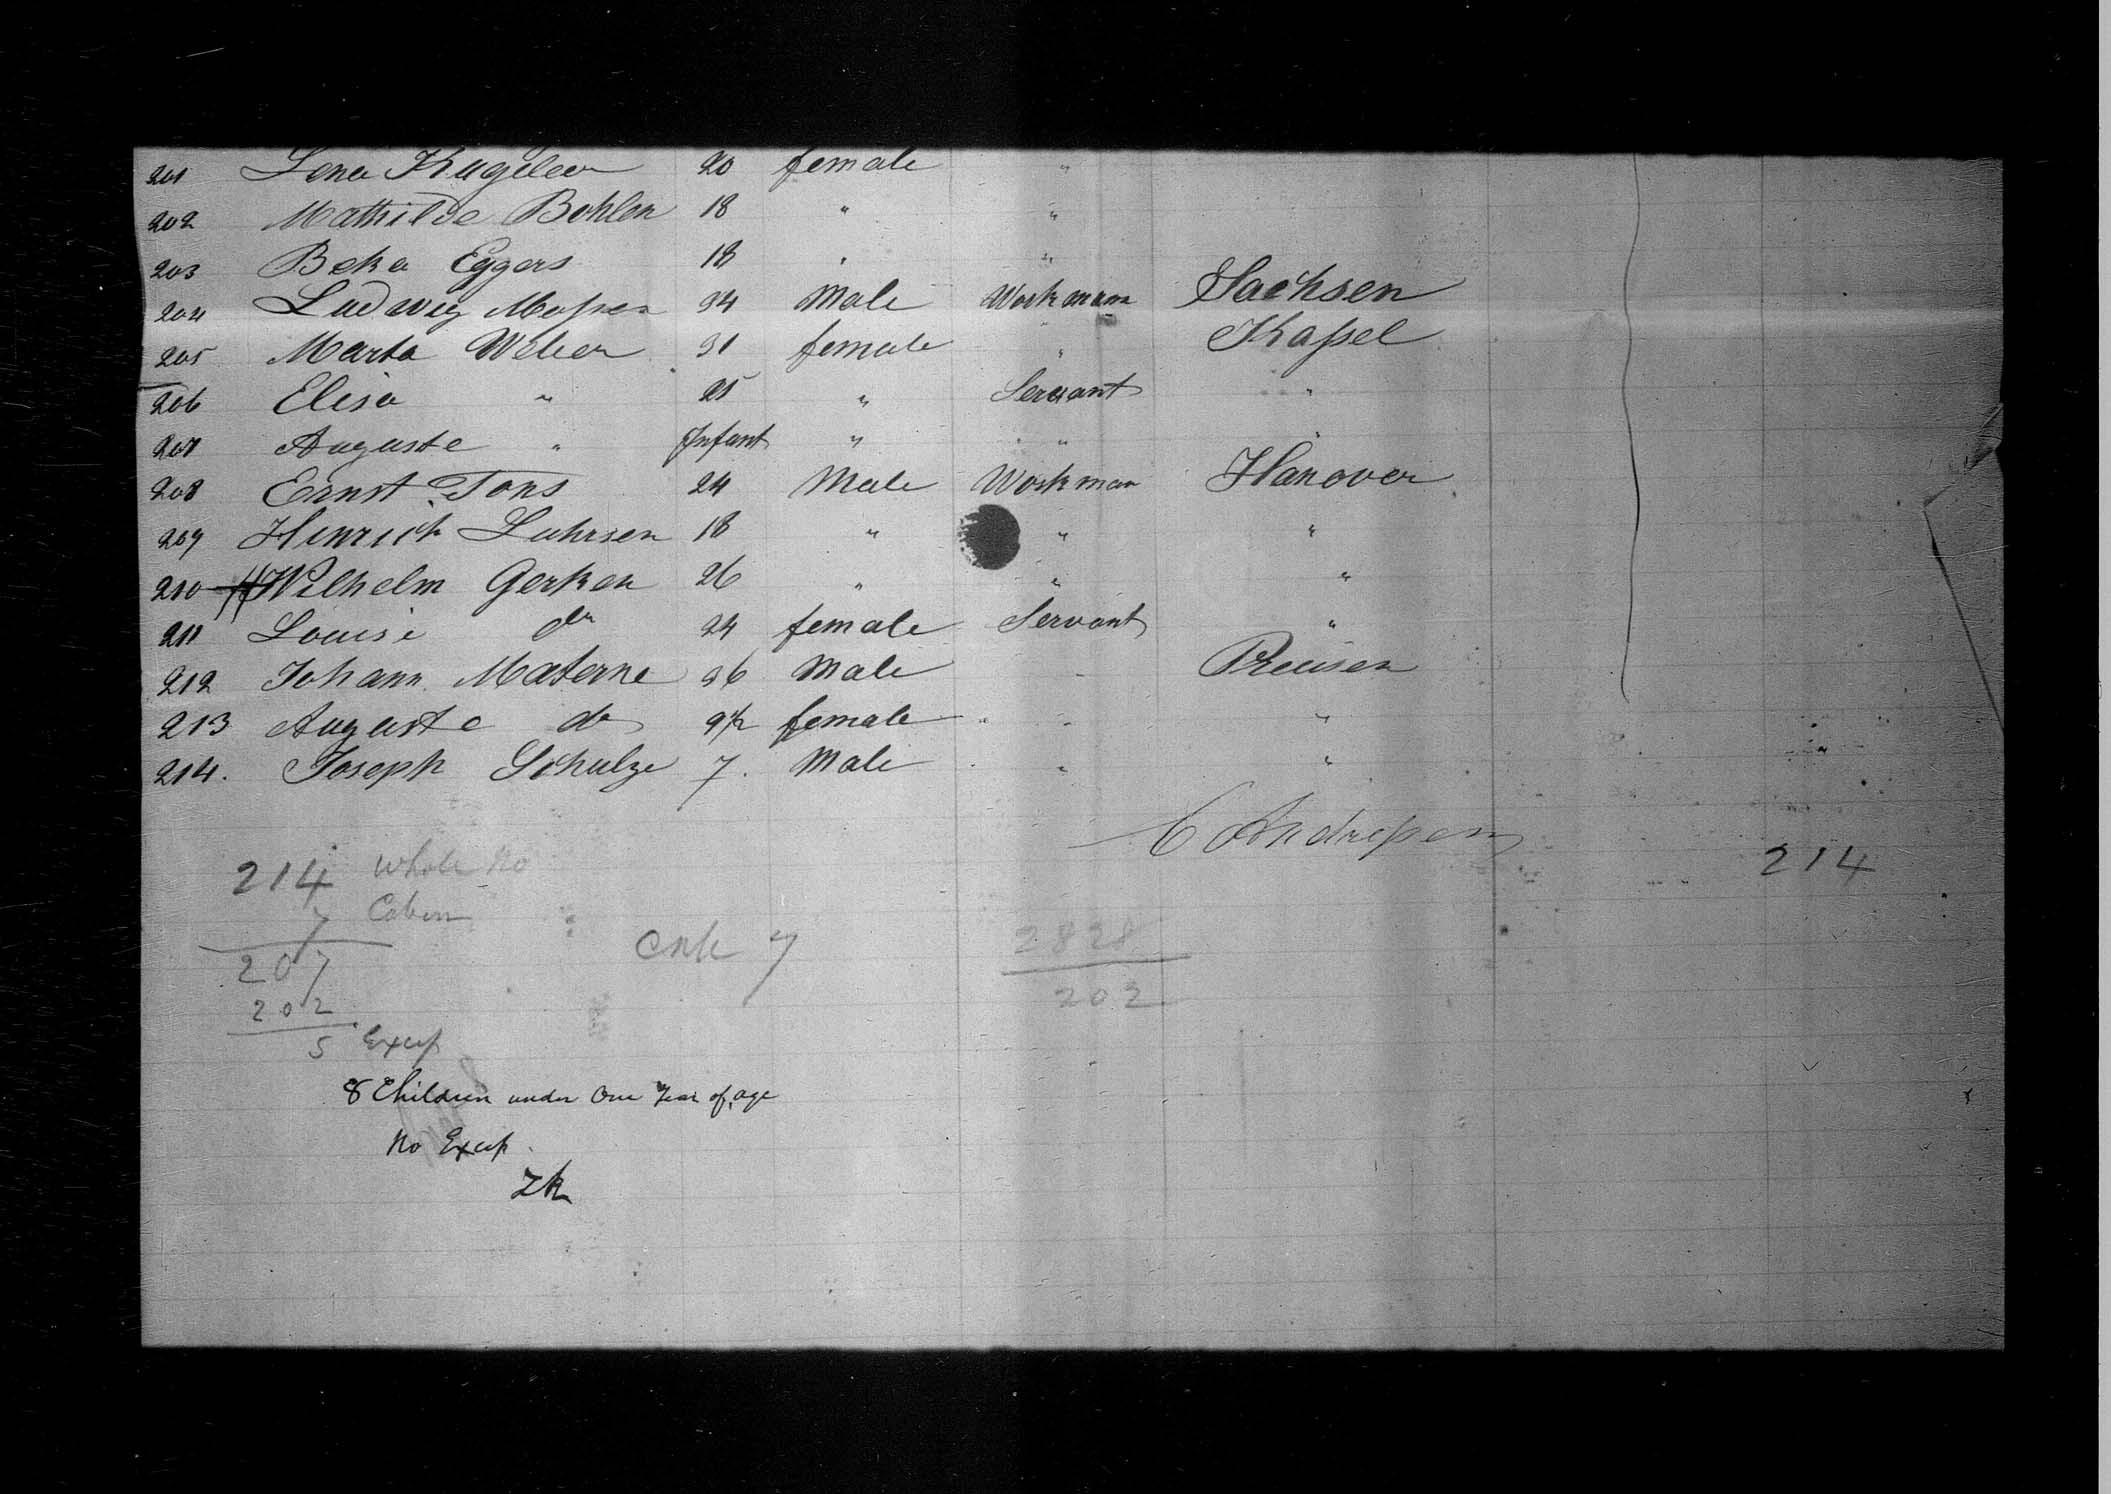 201 Lena Kugeler 20 female "
202 Mathilde Bohlen 18 " "
203 Beka Eggers 18 " "
204 Ludwig 34 Male Workman Sachsen
205 Marta Weber 31 female " Kaſsel
206 Elisa " 25 " Servant "
207 Auguste " Infant " " "
208 Ernst Tons 24 Male Workman Hanover
209 Hinrich Luhrsen 18 " " "
210 Wilhelm Gerken 26 " " "
211 Louise do 24 female Servant "
212 Johann Materne 36 Male " Preusen
213 Auguste do 9½ female " "
214. Joseph Schulze 7. Male " "
C Andreſsen
214 Whole No 214
7 Cabin
207 7 2828
202 202
5 Excess
8 Children under One Year of age
No Excess.